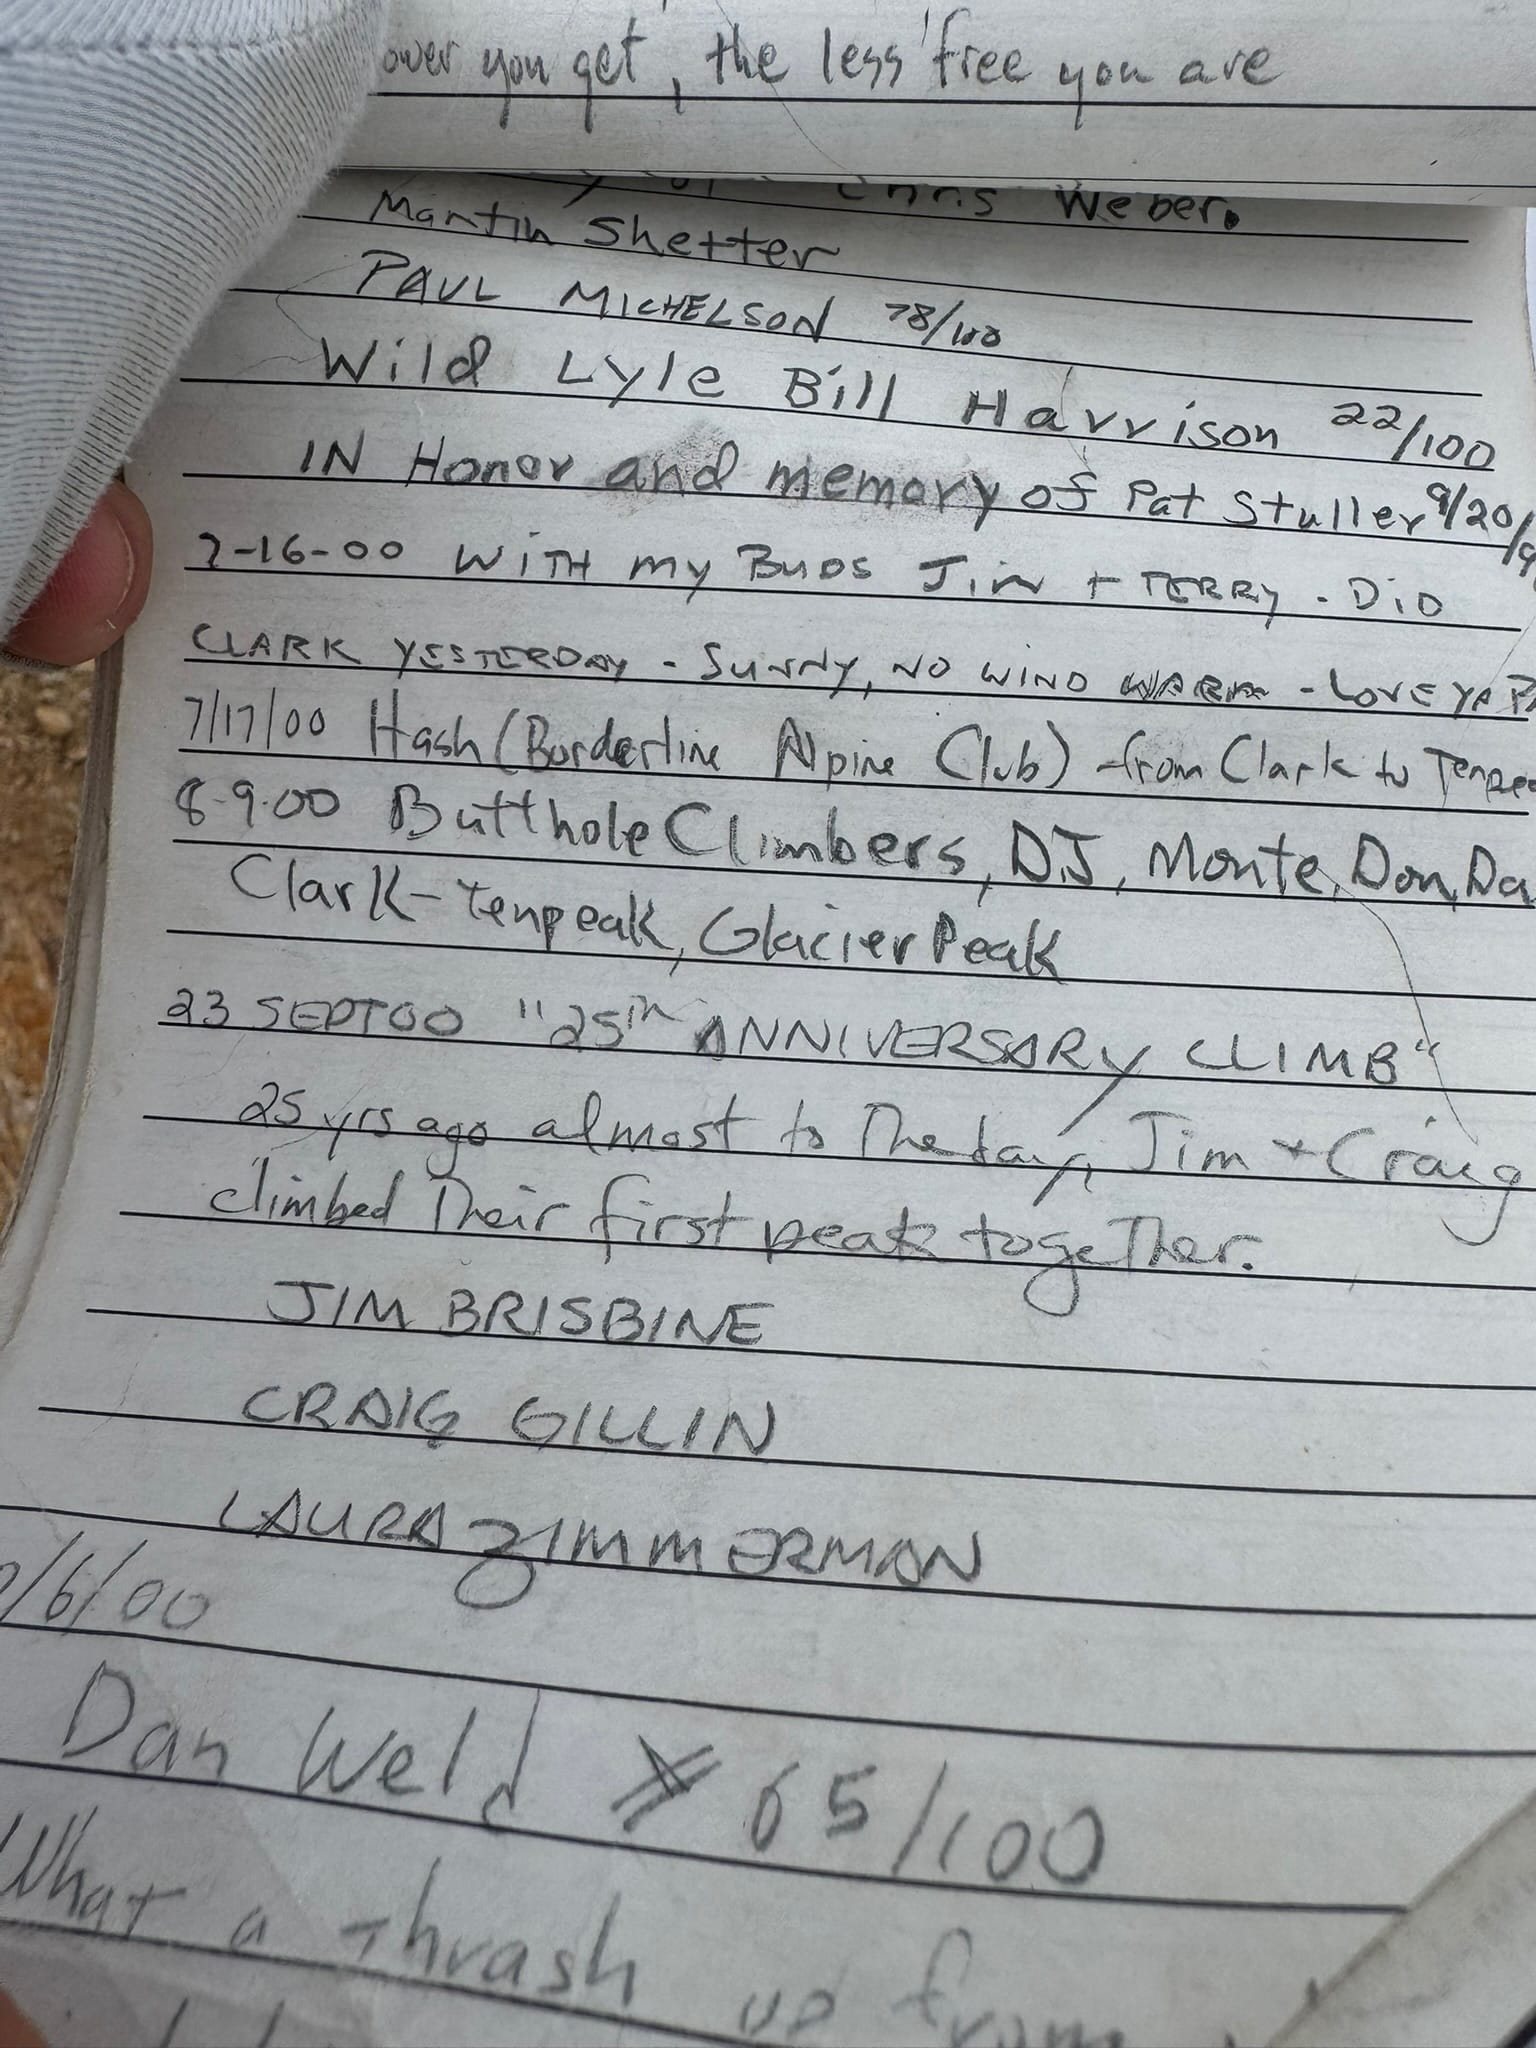 ower you get, the less free you are
Chris Weber.
Martin Shetter
PAUL MICHELSON 78/100
Wild Lyle Bill Harrison 22/100
IN Honor and memory of Pat Stuller 9/20/9
7-16-00 WITH my BUDS JIM + TERRY . DID
CLARK YESTERDAY - SUNNY, NO WIND WARM - LOVE YA
7/17/00 Hash (Borderline Alpine Club) from Clark to Tenpea
8-9-00 Butthole Climbers, DJ, Monte, Don, Da
Clark-Tenpeak, Glacier Peak
23 SEPT 00 "25TH ANNIVERSARY CLIMB"
25 yrs ago almost to The day, Jim + Craig
climbed Their first peak together.
JIM BRISBINE
CRAIG GILLIN
LAURA ZIMMERMAN
/6/00
Dan Weld 65/100
What a thrash up from